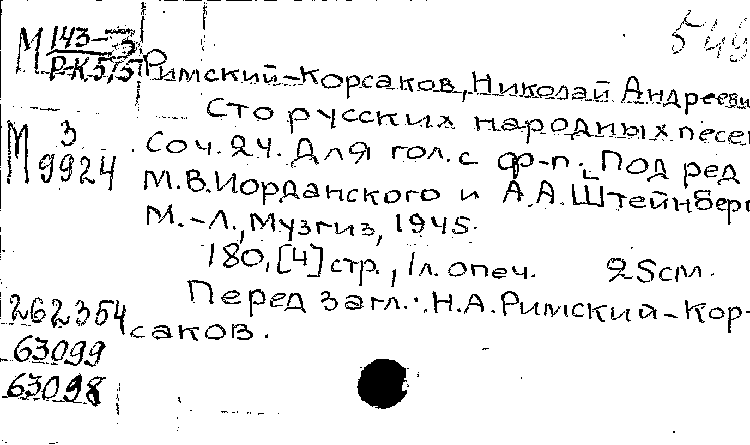 549
М 143-3
Р-К 515
Римский-Корсаков, Николай Андрееви
Сто русских народных песен
М 3
9924
Соч. 24. Для гол. с ф-п. Под ред
М.В. Иорданского и А.А. Штейнберг
М.-Л., Музгиз, 1945.
180, [4] стр., 1л. опеч. 25см.
Перед загл.: Н.А. Римский-Кор-
саков.
262354
63099
63098